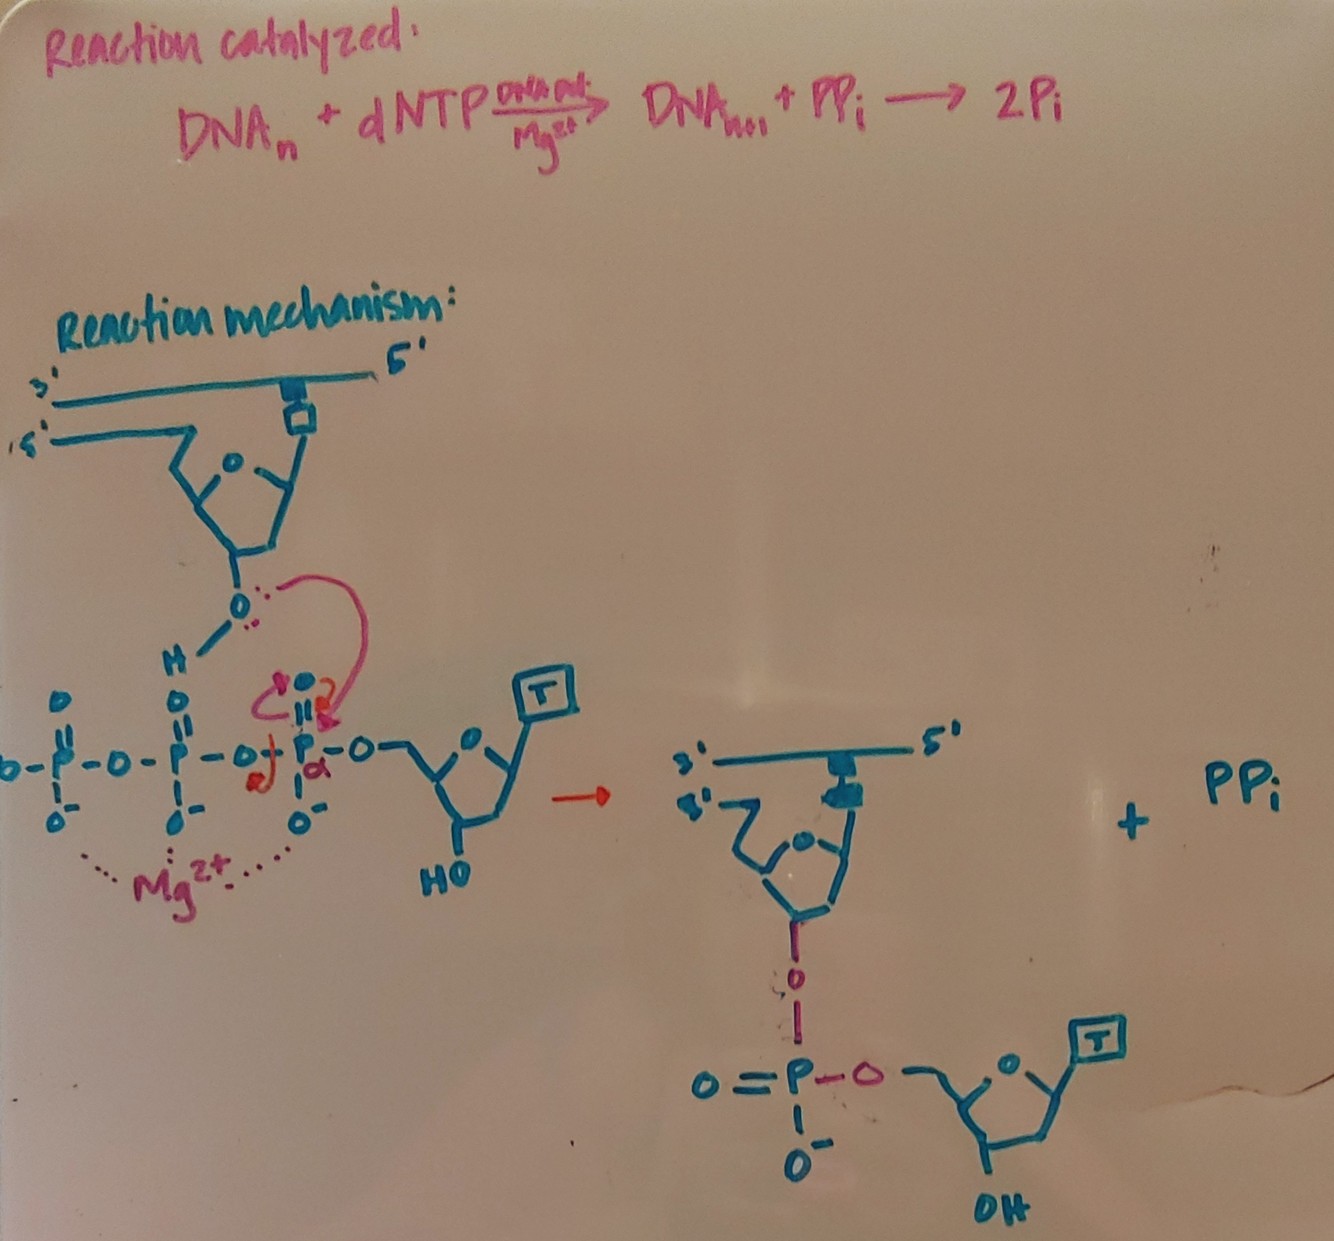 Reaction catalyzed:
DNAn + dNTP DNA pol. Mg2+ → DNAn+1 + PPi → 2Pi
Reaction mechanism:
3' 5'
5'
O
O
H
O O O T
O-P-O-P-O-P-O O
α
O- O- O-
Mg2+
HO
→
3' 5'
5'
O
+ PPi
O
O=P-O O T
O-
OH